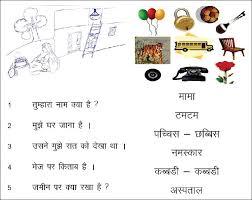 1 तुम्हारा नाम क्या है ?
2 मुझे घर जाना है ।
3 उसने मुझे रात को देखा था ।
4 मेज पर किताब है ।
5 जमीन पर क्या रखा है ?
मामा
टमटम
पच्चिस – छब्बिस
नमस्कार
कब्बडी – कब्बडी
अस्पताल